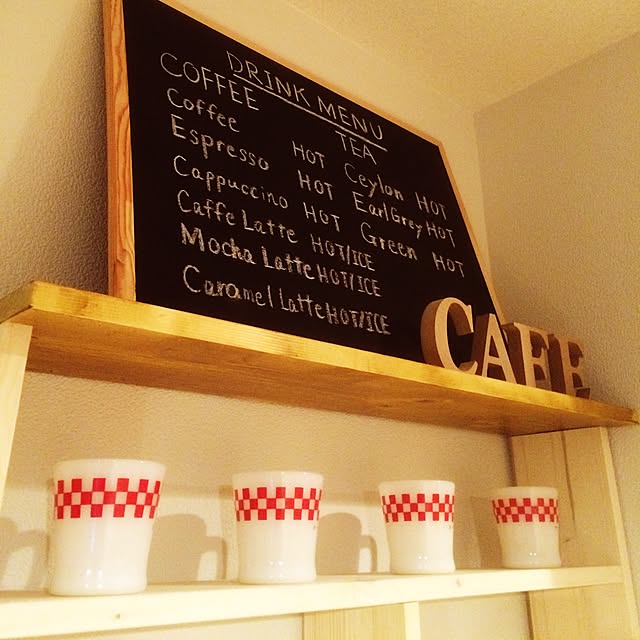 DRINK MENU
COFFEE
Coffee HOT
Espresso HOT
Cappuccino HOT
Caffe Latte HOT/ICE
Mocha Latte HOT/ICE
Caramel Latte HOT/ICE
TEA
Ceylon HOT
Earl Grey HOT
Green HOT
CAFE